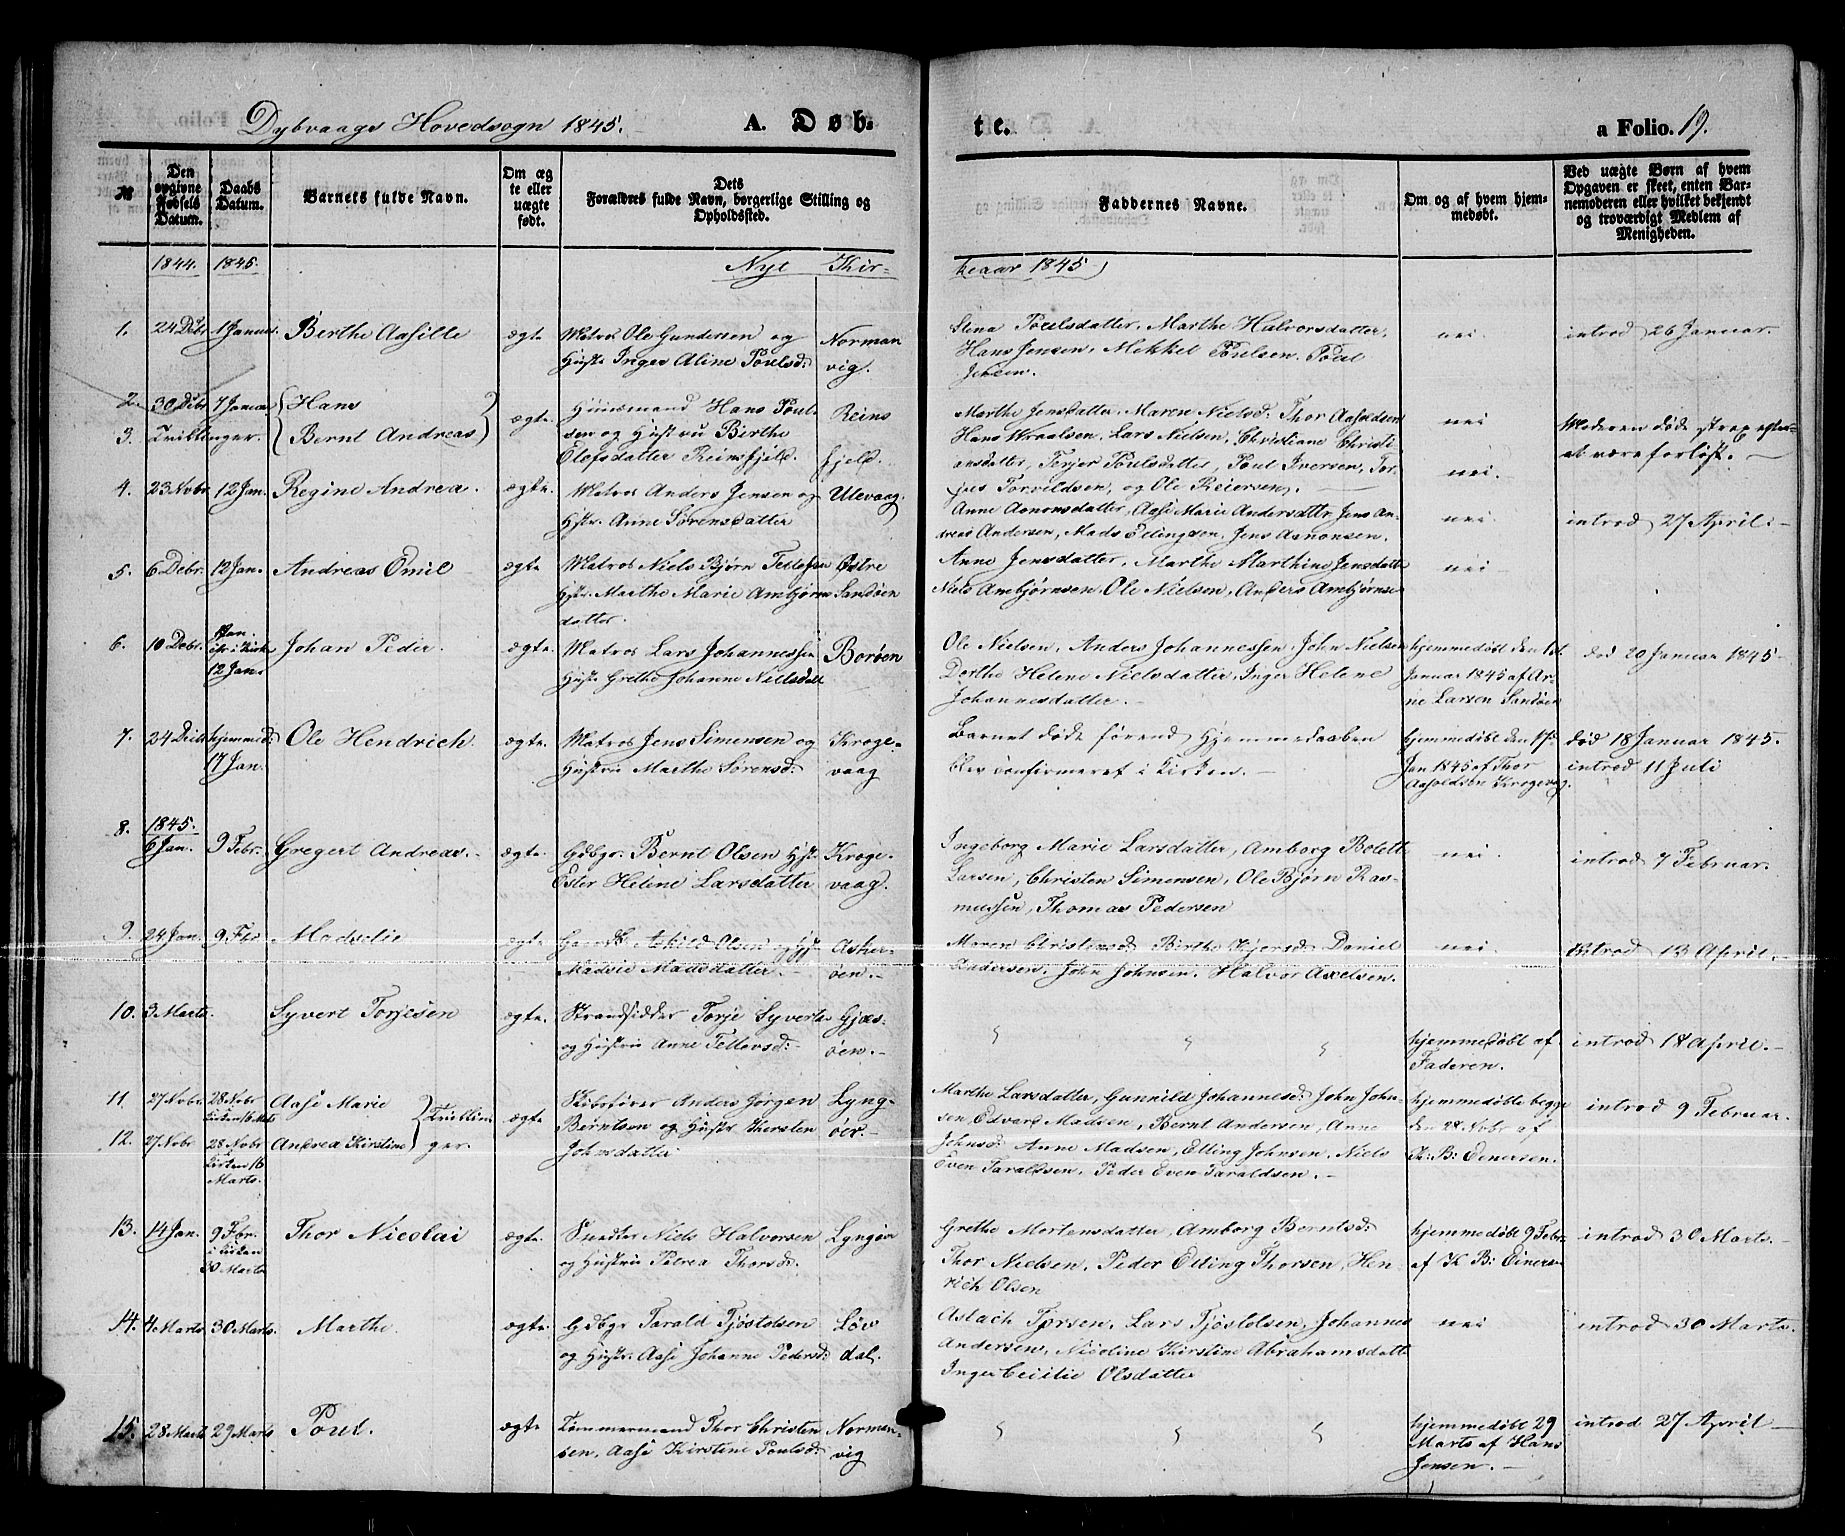 Dybvaags Hovedsogn 1845. A. Døb-
te. a Folio. 19.
№ Den opgivne Fødsels Datum. Daabs Datum. Barnets fulde Navn. Om ægte eller uægte født. Dets Forældres fulde Navn, borgerlige Stilling og Opholdssted.
Faddernes Navne. Om og af hvem hjemmedøbt. Ved uægte Børn af hvem Opgaven er skeet, enten Barnemoderen eller hvilket bekjendt og troværdigt Medlem af Menigheden.
1844. 1845. Nyt Kir-
keaar 1845
1. 24 Debr 1 Januar. Berthe Aasille ægte Matros Ole Gundersen og Norman
Hustr Inger Aline Poulsd: vig.
Stina Poulsdatter, Marthe Halvorsdatter, nei. introd 26 Januar.
Hans Jensen, Mikkel Poulsen, Poul
Jensen.
2. 30 Debr 7 Januar Hans
3. Tvillinger. Bernt Andreas ægte. Huusmand Hans Poul- Reins
sen og Hustru Birthe
Olefsdatter Reinsfjeld. fjeld.
Marthe Jensdatter, Maren Nielsd: Thor Aasoldsen nei Moderen døde strax efter
Hans Wraalsen, Lars Nielsen, Christiane Christi- at være forløst.
ansdatter, Terjer Poulsdatter, Poul Iversen, Tor- nei.
jus Torvildsen, og Ole Reiersen.
4. 23 Novbr 12 Jan. Regine Andrea. ægte. Matros Anders Jensen og Ulevaag.
Hstr. Anne Sørensdatter
Anne Aanonsdatter, Aase Marie Andersdattr, Jens An- nei. introd 27 April.
dreas Andersen, Mads Ellingsen, Jens Aanonsen.
5. 6 Debr. 12 Jan. Andreas Omil ægte Matros Niels Bjørn Tellefsen Østre
Hstr. Marthe Marie Ambjørns Sandøen
datter.
Anne Jensdatter, Marthe Marthine Jensdatte nei
Niels Ambjørnsen, Ole Nielsen, Anders Ambjørnse
6. 10 Debr. 12 Jan. Johan Peder. ægte. Matros Lars Johannessen Borøen
Hustr Grethe Johanne Nielsdatt
Ole Nielsen, Anders Johannessen, John Nielsen hjemmedøbt den 1st. død 20 Januar 1845
Dorthe Helene Nielsdatter, Inger Helene Januar 1845 af Ar-
Johannesdatter. ne Larsen Sandøen
7. 24 Debr hjemmed: Ole Hendrich ægte. Matros Jens Simensen og Kroge-
17 Jan. Hustru Marthe Sørensd: vaag
Barnet døde førend Hjemmedaaben hjemmedøbt den 17 død 18 Januar 1845.
blev confirmeret i Kirken. Jan 1845 af Thor introd 11 Juli
Aasoldsen Krogevaag.
8. 1845.
6 Jan. 9 Febr. Gregert Andreas. ægte. Gdbgr. Bernt Olsen Hstr Kroge-
Ester Helene Larsdatter vaag.
Ingeborg Marie Larsdatter, Amborg Bolett nei. introd 7 Februar.
Larsen, Christen Simensen, Ole Bjørn Ras-
mussen, Thomas Pedersen
9. 24 Jan. 9 Fbr Madselie ægte Askild Olsen og Hst Asker-
Madsie Madsdatter. øen.
Maren Christensd: Birthe Daniel nei. introd 13 April.
Pedersen, John Johnsen, Halvor Axelsen.
10. 3 Marts. Syvert Torjesen ægte. Strandsidder Torje Syverts Gjæs-
og Hustru Anne Tellevsd: øen.
" " " hjemmedøbt af introd 18 April.
Faderen.
11 27 Nobr. 28 Nobr Aase Marie Tvillin- ægte Skibsfører Anders Jørgen Lyng-
kirken 16 Mts ger. Berntsen og Hustr Thersten øer.
12. 27 Nobr 28 Nobr Andrea Kirstine Johnsdatter
kirken 16
Marts.
Marthe Larsdatter, Gunnild Johannesd: John John- hjemmedøbte begge introd 9 Februar.
sen, Edvard Madsen, Bernt Andersen, Anne den 28 Nobr af
Johnsd: Anne Madsen, Elling Johnsen, Niels K: B: Einersen.
Even Taraldsen, Peder Even Taraldsen.
13. 14 Jan. 9 Febr. Thor Nicolai ægte. Snedker Niels Halvorsen Lyngøer
i kirken og Hustru Petrea Thorsd:
30 Marts
Grethe Mortensdatter, Amborg Berntsd: hjemmedøbt 9 Febr. introd 30 Marts.
Thor Nielsen, Peder Elling Thorsen, Hen- af K B: Einersen
rich Olsen
14. 4 Marts 30 Marts Marthe. ægte. Gdbgr Tarald Tjøstolsen Løv
og Hustr. Aase Johanne Pedersd: dal.
Aslach Tjorsen, Lars Tjøstolsen, Johannes nei introd 30 Marts.
Andersen, Nicoline Kirstine Abrahamsdatt
Inger Cecilie Olsdatter
15. 28 Marts 29 Marts Poul. ægte Tømmermand Thor Christen Norman-
sen, Aase Kirstine Poulsd: vig
" " " hjemmedøbt 29 introd 27 April
Marts af Hans
Jensen.